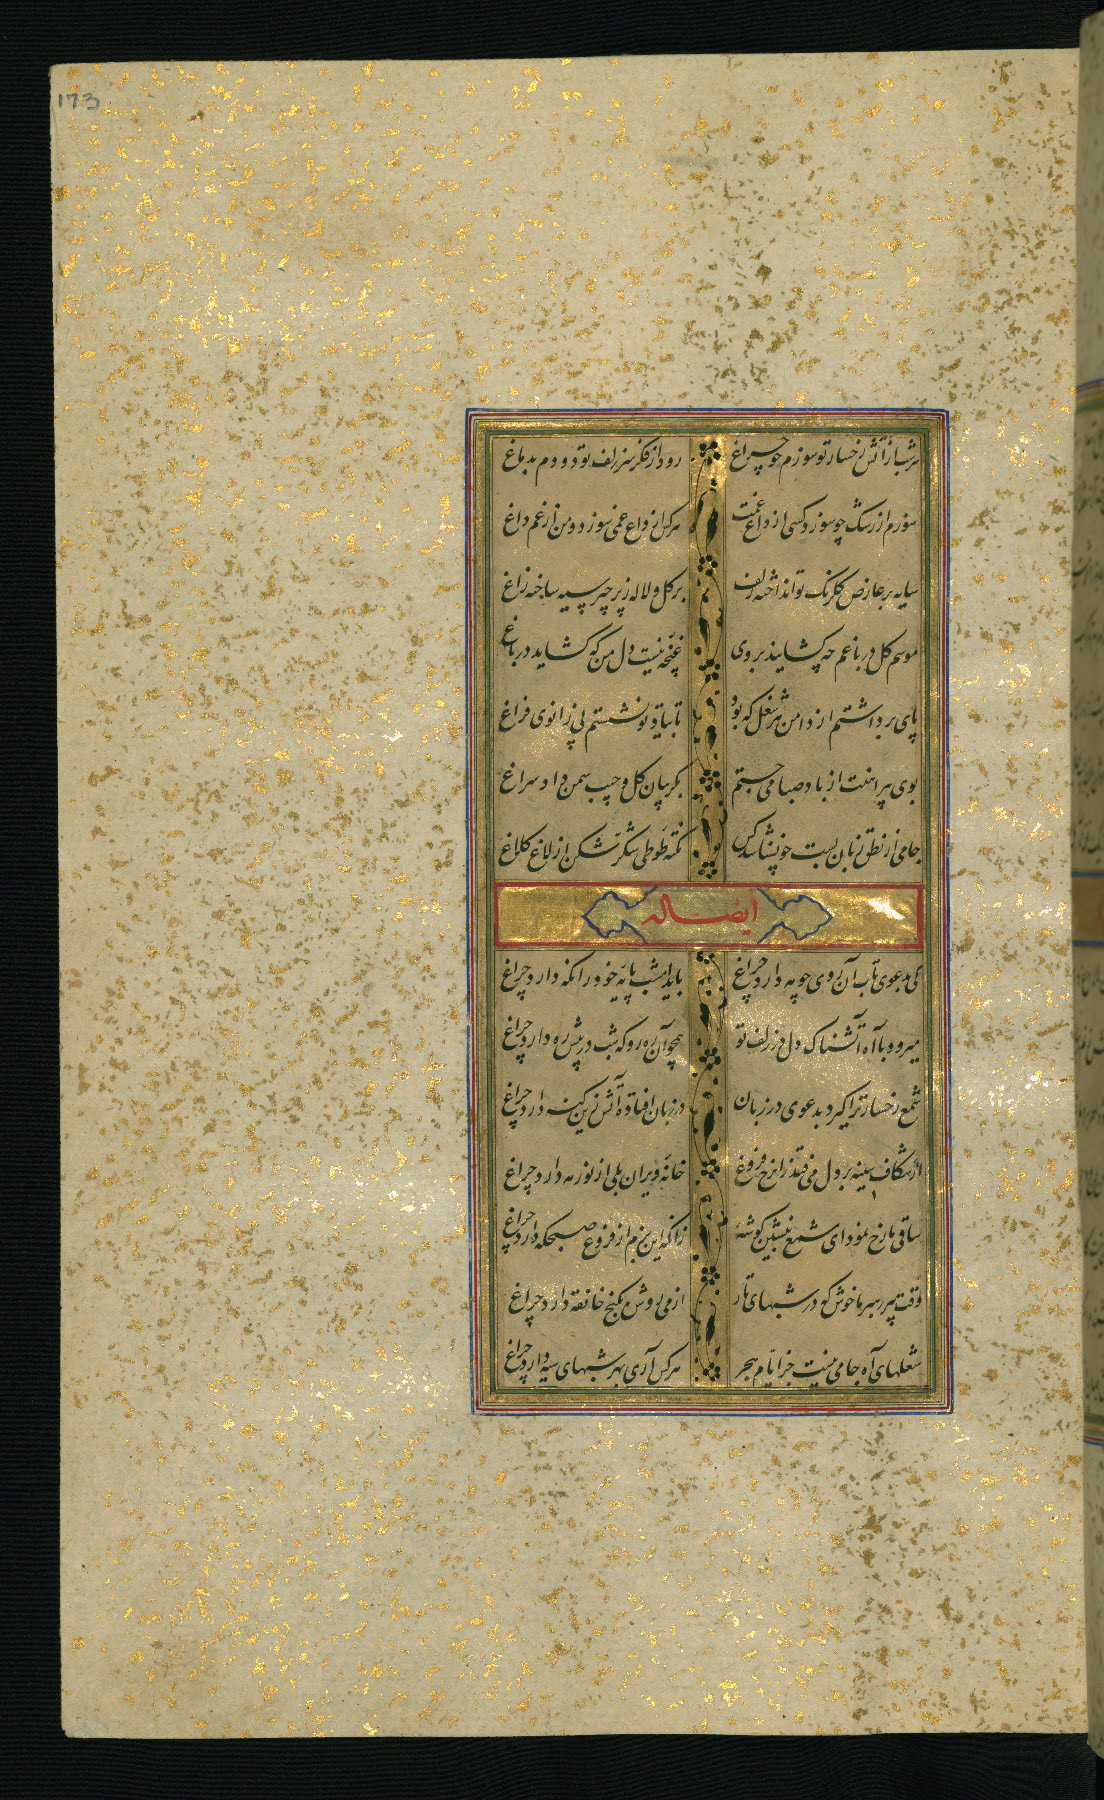 173
هر شب از آتش رخسار تو سوزم چو چراغ رود از فکر سر زلف تو دودم بدماغ
سوزم از رشک چو سوزد کسی از داغ غمت هرکس از داغ غمی سوزد و من از غم داغ
سایه بر عارض گلرنگ تو انداخته زلف بر گل و لاله ز پر چتر سیه ساخته زاغ
موسم گل در باغم چه گشایند بروی غنچه نیست دل من که گشاید در باغ
پای برداشتم از دامن هر شغل که بود تا بیاد تو نشستم پی زانوی فراغ
بوی پیراهنت از باد صبا می جستم بگریبان گل و جیب سمن داد سراغ
جامی از نطق زبان بست چو نشناسد کس نکته طوطی شکرشکن از لاغ کلاغ
ایضا له
کی بدعوی تاب آن روی چو مه دارد چراغ باید امشب پایه خود را نگه دارد چراغ
میرود با آه آتشناک دل در زلف تو همچو آن ره رو که شب در پیش ره دارد چراغ
شمع رخسار ترا گیرد بدعوی در زبان در زبان افتاده آتش زین گنه دارد چراغ
از شکاف سینه بر دل می فتد زان رخ فروغ خانه ویران بلی از نور مه دارد چراغ
ساقی ما رخ نمود ای شمع بنشین گوشه زانکه این بزم از فروغ صبحگه دارد چراغ
وقت پیر رهبر ما خوش که در شبهای تار از می روشن بکنج خانقه دارد چراغ
شعلهای آه جامی نیست جز ایام هجر هرکس آری بهر شبهای سیه دارد چراغ